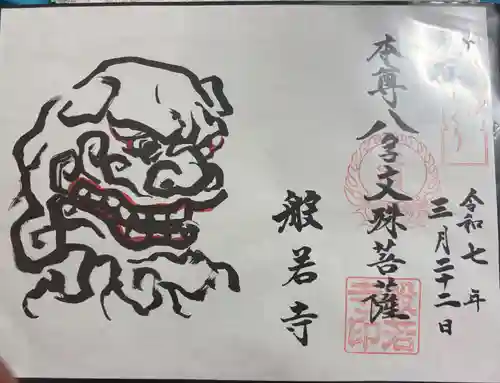 令和七年
三月二十二日
本尊八字文殊菩薩
般若寺
般若
寺印